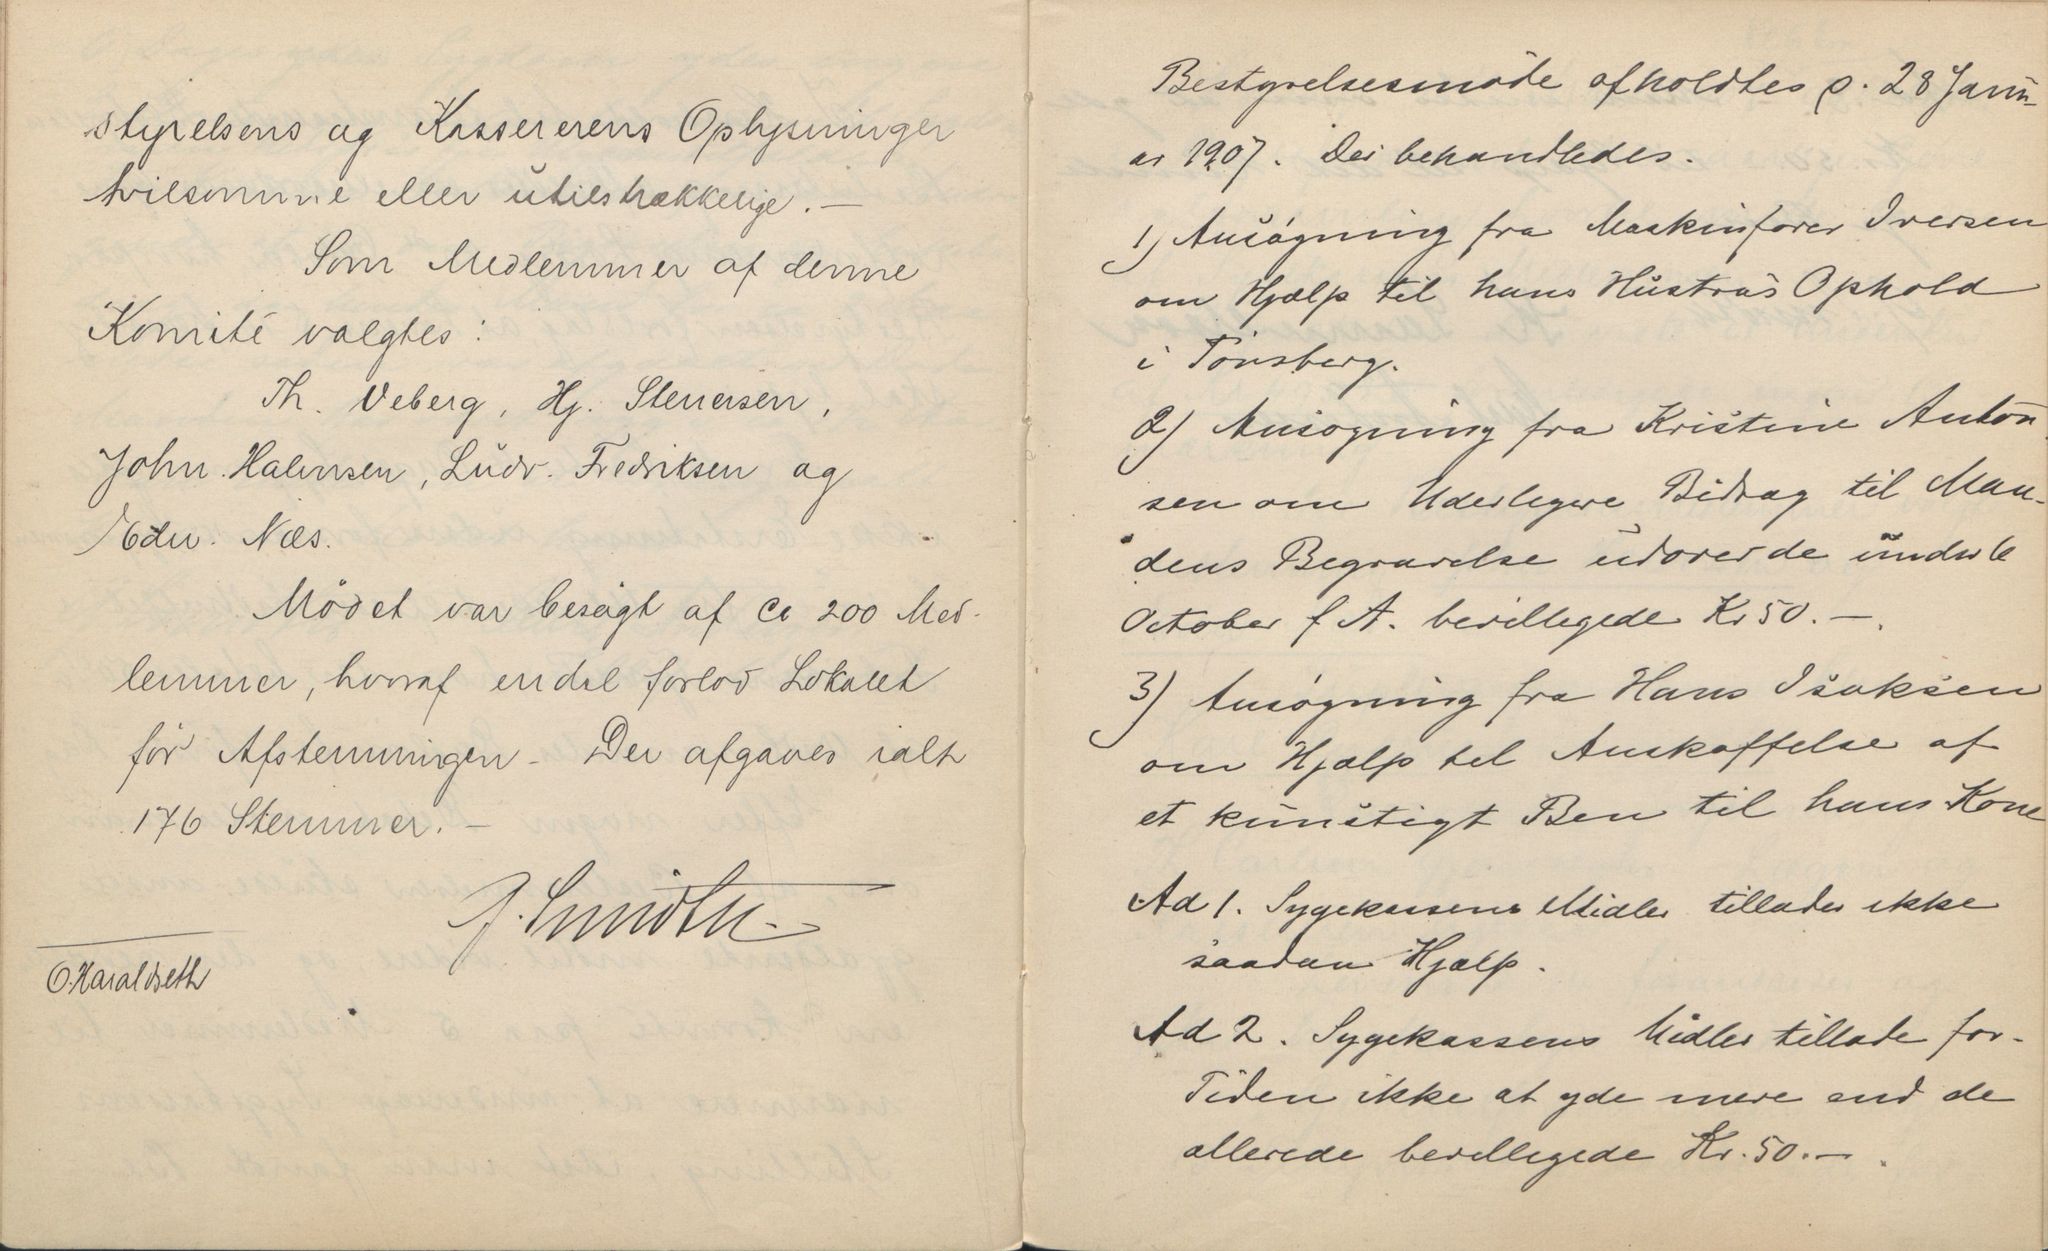 styrelsens og Kassererens Oplysninger
tvilsomme eller utilstrækkelige. —
Som Medlemmer af denne
Komité valgtes:
Th. Veberg, Hj. Stenersen,
John Halvnsen, Ludv. Fredriksen og
Edv. Næs.
Mödet var besøgt af Ca 200 Med-
lemmer, hvoraf endel forlod Lokalet
før Afstemningen – Der afgaves ialt
176 Stemmer. —
J. Smidth
O. Haraldseth
Bestyrelsesmöde afholdtes p. 28 Janu-
ar 1907. Der behandledes.
1) Ansögning fra Maskinfører Iversen
om Hjælp til hans Hustrus Ophold
i Tönsberg.
2) Ansögning fra Kristine Anton-
sen om Yderligere Bidrag til Man-
dens Begravelse udover de under
October f A. bevillegede Kr 50. —.
3) Ansögning fra Hans Isaksen
om Hjælp til Anskaffelse af
et kunstigt Ben til hans Kone
Ad 1. Sygekassens Midler tillader ikke
saadan Hjælp.
Ad 2. Sygekassens Midler tillade for-
Tiden ikke at yde mere end de
allerede bevillegede Kr. 50. —.